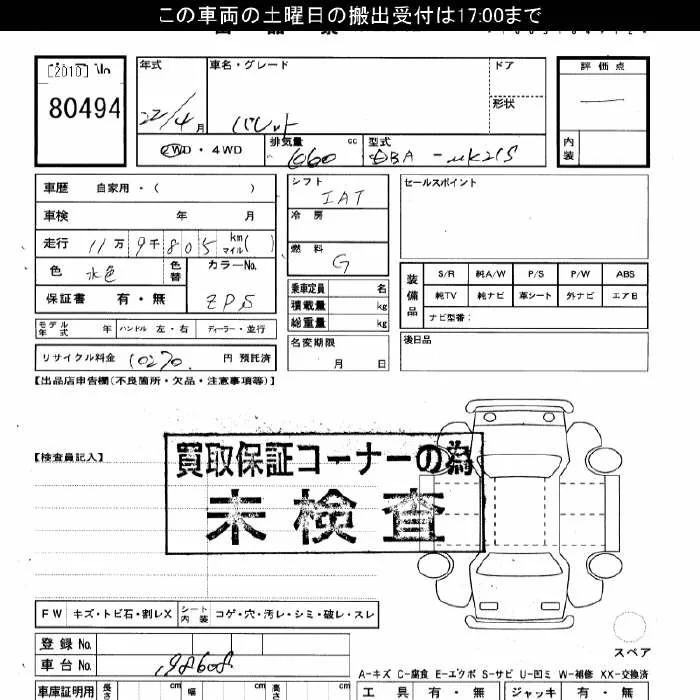 この車両の土曜日の搬出受付は17:00まで
[2010]
80494
年式
22/4月
車名・グレード
パレット
ドア
形状
評価点
内装
2WD・4WD
排気量 660 cc
型式 DBA-MK21S
車歴 自家用・( )
車検 年 月
走行 11万9千805 km マイル( )
色 水色 色替
カラーNo. ZPS
保証書 有・無
シフト IAT
冷房
燃料 G
乗車定員 名
積載量 kg
総重量 kg
名変期限
月 日
セールスポイント
装備品
S/R 純A/W P/S P/W ABS
純TV 純ナビ 革シート 外ナビ エアB
ナビ型番:
後日品
モデル年式 年 ハンドル 左・右 ディーラー・並行
リサイクル料金 10270 円 預託済
【出品店申告欄(不良箇所・欠品・注意事項等)】
【検査員記入】
買取保証コーナーの為
未検査
FW キズ・トビ石・割レX シート内装 コゲ・穴・汚レ・シミ・破レ・スレ
スペア
登録No.
車台No. 198608
A-キズ C-腐食 E-エクボ S-サビ U-凹ミ W-補修 XX-交換済
車庫証明用 長さ cm 幅 cm 高さ cm
工具 有・無 ジャッキ 有・無